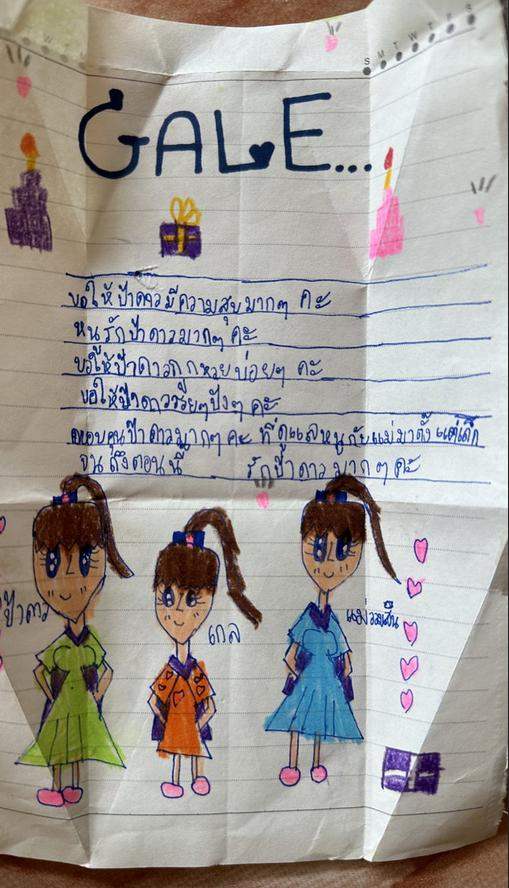 S M T W T F S
GALE...
ขอให้ป้าดาวมีความสุขมากๆ ค่ะ
หนูรักป้าดาวมากๆ ค่ะ
ขอให้ป้าดาวถูกหวยบ่อยๆ ค่ะ
ขอให้ป้าดาวรวยๆปังๆ ค่ะ
ขอบคุณป้าดาวมากๆ ค่ะ ที่ดูแลหนูกับแม่มาตั้งแต่เด็ก
จนถึงตอนนี้ รักป้าดาวมากๆ ค่ะ
ป้าดาว
เกล